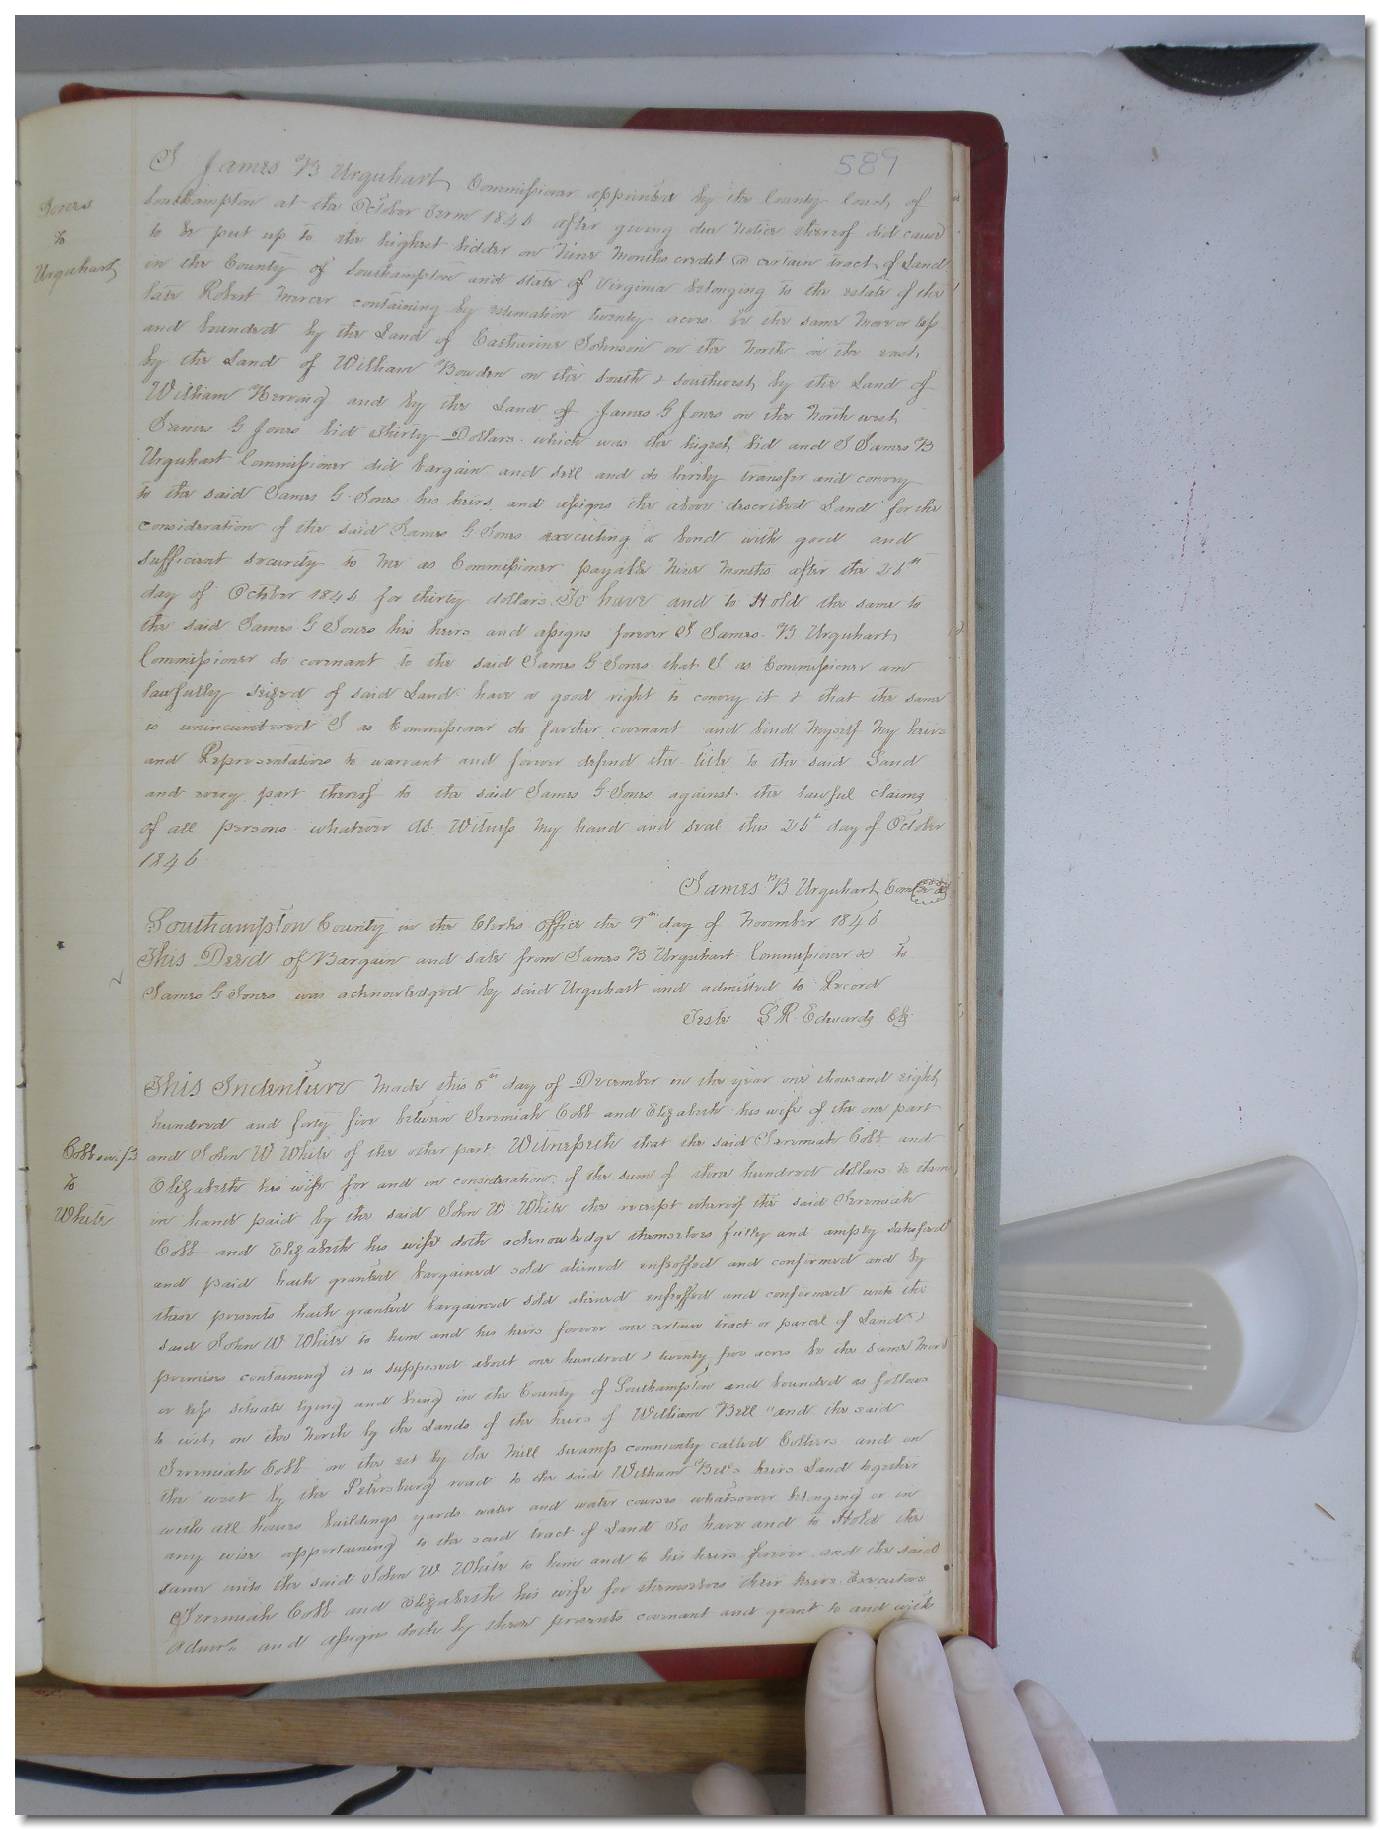 589
I James B Urquhart Commissioner appointed by the County Court of
Jones
to
Urquhart
Southampton at the October Term 1846 after giving due notice thereof did cause
to be put up to the highest bidder on Nine Months credit a certain tract of Land
in the County of Southampton and state of Virginia belonging to the estate of the
late Robert Mercer containing by estimation twenty acres be the same more or less
and bounded by the Land of Catharine Johnson on the North on the east
by the Land of William Bowden on the south & southwest by the Land of
William Herring and by the Land of James G Jones on the North west
James G Jones bid thirty Dollars which was the higest bid and I James B
Urquhart Commissioner did bargain and sell and do hereby transfer and convey
to the said James G Jones his heirs and assigns the above described Land for the
consideration of the said James G Jones executing a bond with good and
sufficient security to me as Commissioner payable Nine months after the 26th
day of October 1846 for thirty dollars To have and to Hold the same to
the said James G Jones his heirs and assigns forever I James B Urquhart
Commissioner do covenant to the said James G Jones that I as Commissioner am
lawfully seized of said Land have a good right to convey it & that the same
is unincumbered I as Commissioner do further covenant and bind myself my heirs
and Representatives to warrant and forever defend the title to the said Land
and every part thereof to the said James G Jones against the lawful claims
of all persons whatever As Witness my hand and seal this 26th day of October
1846
James B Urquhart Com Seal
Southampton County in the Clerks office the 9th day of November 1846
This Deed of Bargain and sale from James B Urquhart Commissioner &c to
James G Jones was acknowledged by said Urquhart and admitted to Record
Teste L R Edwards Clk
This Indenture Made this 8th day of December in the year one thousand eight
hundred and forty five between Jeremiah Cobb and Elizabeth his wife of the one part
Cobb & wife
to
White
and John W White of the other part Witnesseth that the said Jeremiah Cobb and
Elizabeth his wife for and in consideration of the sum of three hundred dollars to them
in hand paid by the said John W White the receipt whereof the said Jeremiah
Cobb and Elizabeth his wife doth acknowledge themselves fully and amply satisfied
and paid hath granted bargained sold aliened enfeoffed and confermed and by
these presents hath granted bargained sold aliened enfeoffed and confermed unto the
said John W White to him and his heirs forever one certain tract or parcel of Land &
premises containing it is supposed about one hundred & twenty five acres be the same more
or less situate lying and being in the County of Southampton and bounded as follows
to wit, on the North by the Lands of the heirs of William Bell and the said
Jeremiah Cobb on the est by the Mill swamp commonly called and on
the west by the Petersburg road to the said William Bells heirs Land together
with all houses buildings yards water and water courses whatsoever belonging or in
any wise appertaining to the said tract of Land To have and to Hold the
same unto the said John W White to him and to his heirs forever and the said
Jeremiah Cobb and Elizabeth his wife for themselves their heirs Executors
Admrs and assigns doth by these presents covenant and grant to and with